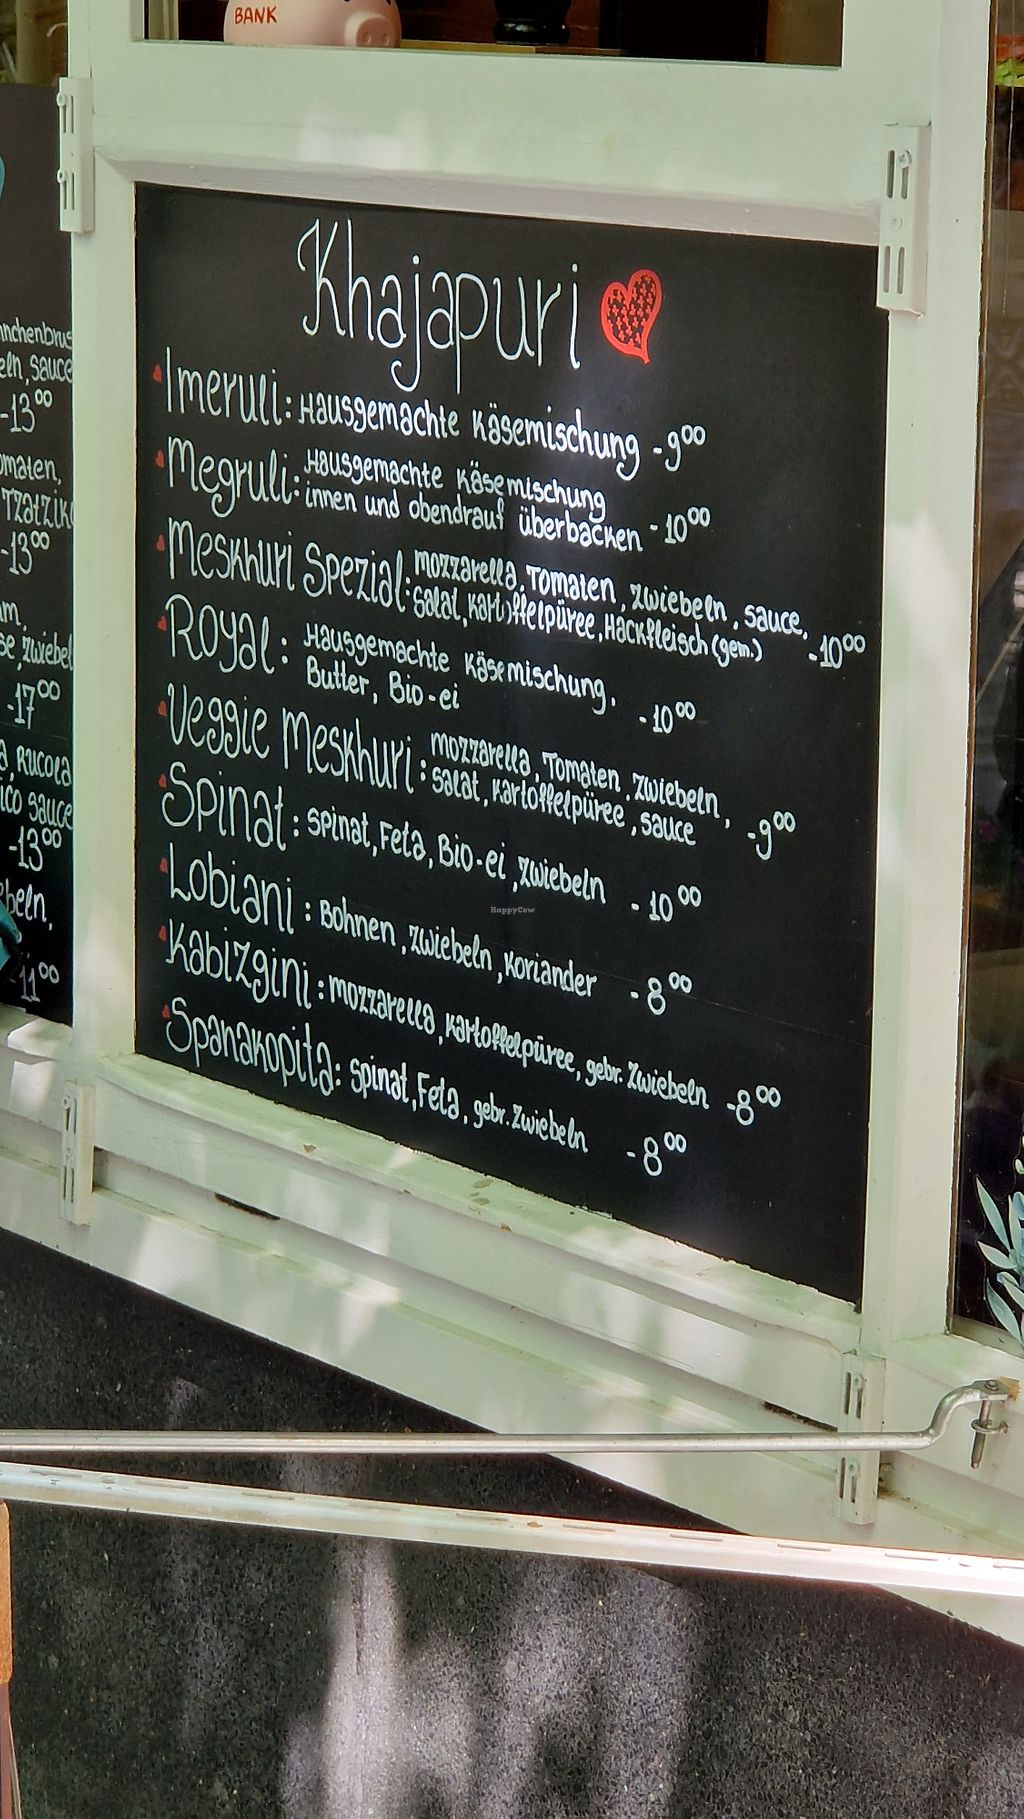 BANK
Khajapuri
Imeruli: Hausgemachte Käsemischung -9⁰⁰
Megruli: Hausgemachte Käsemischung
innen und obendrauf überbacken -10⁰⁰
Meskhuri Spezial: Mozzarella, Tomaten, Zwiebeln, Sauce,
Salat, Kartoffelpüree, Hackfleisch (gem.) -10⁰⁰
Royal: Hausgemachte Käsemischung,
Butter, Bio-ei -10⁰⁰
Veggie Meskhuri: Mozzarella, Tomaten, Zwiebeln,
Salat, Kartoffelpüree, Sauce -9⁰⁰
Spinat: Spinat, Feta, Bio-ei, Zwiebeln -10⁰⁰
Lobiani: Bohnen, Zwiebeln, Koriander -8⁰⁰
Kabizgini: Mozzarella, Kartoffelpüree, gebr. Zwiebeln -8⁰⁰
Spanakopita: Spinat, Feta, gebr. Zwiebeln -8⁰⁰
HappyCow
-13⁰⁰
-13⁰⁰
-17⁰⁰
Rucola
Sauce
-13⁰⁰
-11⁰⁰